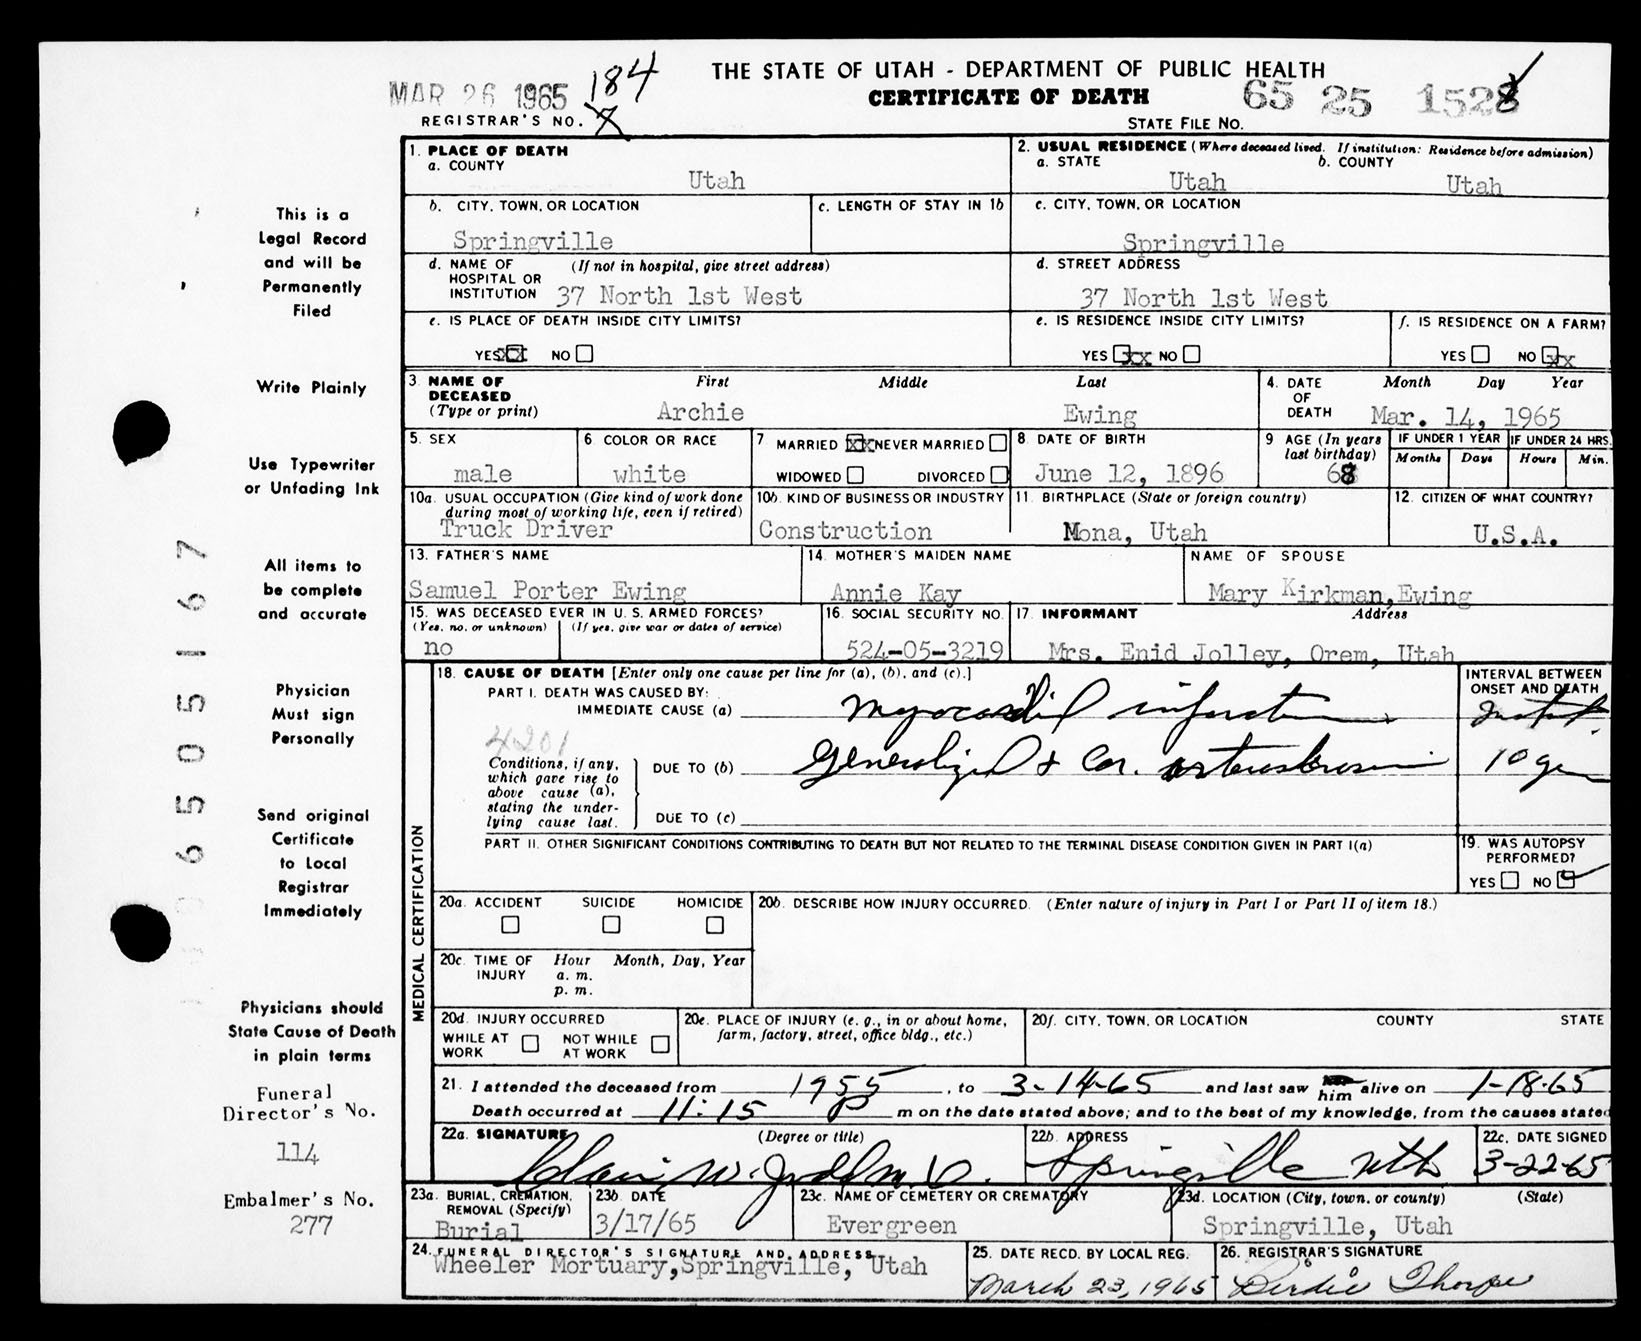 THE STATE OF UTAH - DEPARTMENT OF PUBLIC HEALTH
CERTIFICATE OF DEATH
MAR 26 1965 184
REGISTRAR'S NO.
65 25 1528
STATE FILE NO.
This is a
Legal Record
and will be
Permanently
Filed
Write Plainly
Use Typewriter
or Unfading Ink
All items to
be complete
and accurate
Physician
Must sign
Personally
Send original
Certificate
to Local
Registrar
Immediately
Physicians should
State Cause of Death
in plain terms
Funeral
Director's No.
114
Embalmer's No.
277
65505167
1. PLACE OF DEATH
a. COUNTY
Utah
2. USUAL RESIDENCE (Where deceased lived. If institution: Residence before admission)
a. STATE b. COUNTY
Utah Utah
b. CITY, TOWN, OR LOCATION
Springville
c. LENGTH OF STAY IN 1b
c. CITY, TOWN, OR LOCATION
Springville
d. NAME OF (If not in hospital, give street address)
HOSPITAL OR
INSTITUTION 37 North 1st West
d. STREET ADDRESS
37 North 1st West
e. IS PLACE OF DEATH INSIDE CITY LIMITS?
YES xx NO
e. IS RESIDENCE INSIDE CITY LIMITS?
YES xx NO
f. IS RESIDENCE ON A FARM?
YES NO xx
3. NAME OF First Middle Last
DECEASED
(Type or print) Archie Ewing
4. DATE Month Day Year
OF
DEATH Mar. 14, 1965
5. SEX
male
6. COLOR OR RACE
white
7. MARRIED xx NEVER MARRIED
WIDOWED DIVORCED
8. DATE OF BIRTH
June 12, 1896
9. AGE (In years
last birthday)
68
IF UNDER 1 YEAR IF UNDER 24 HRS.
Months Days Hours Min.
10a. USUAL OCCUPATION (Give kind of work done
during most of working life, even if retired)
Truck Driver
10b. KIND OF BUSINESS OR INDUSTRY
Construction
11. BIRTHPLACE (State or foreign country)
Mona, Utah
12. CITIZEN OF WHAT COUNTRY?
U.S.A.
13. FATHER'S NAME
Samuel Porter Ewing
14. MOTHER'S MAIDEN NAME
Annie Kay
NAME OF SPOUSE
Mary Kirkman,Ewing
15. WAS DECEASED EVER IN U.S. ARMED FORCES?
(Yes, no, or unknown) (If yes, give war or dates of service)
no
16. SOCIAL SECURITY NO.
524-05-3219
17. INFORMANT Address
Mrs. Enid Jolley, Orem, Utah
MEDICAL CERTIFICATION
18. CAUSE OF DEATH [Enter only one cause per line for (a), (b), and (c).]
INTERVAL BETWEEN
ONSET AND DEATH
PART I. DEATH WAS CAUSED BY:
IMMEDIATE CAUSE (a) Myocardial infarction
4201
Conditions, if any,
which gave rise to
above cause (a),
stating the under-
lying cause last.
DUE TO (b) Generalized & Cor. arteriosclerosis 10 yr
DUE TO (c)
PART II. OTHER SIGNIFICANT CONDITIONS CONTRIBUTING TO DEATH BUT NOT RELATED TO THE TERMINAL DISEASE CONDITION GIVEN IN PART I(a)
19. WAS AUTOPSY
PERFORMED?
YES NO
20a. ACCIDENT SUICIDE HOMICIDE
20b. DESCRIBE HOW INJURY OCCURRED. (Enter nature of injury in Part I or Part II of item 18.)
20c. TIME OF Hour Month, Day, Year
INJURY a. m.
p. m.
20d. INJURY OCCURRED
WHILE AT WORK NOT WHILE AT WORK
20e. PLACE OF INJURY (e. g., in or about home,
farm, factory, street, office bldg., etc.)
20f. CITY, TOWN, OR LOCATION COUNTY STATE
21. I attended the deceased from 1955, to 3-14-65 and last saw him alive on 1-18-65
Death occurred at 11:15 P m on the date stated above; and to the best of my knowledge, from the causes stated
22a. SIGNATURE (Degree or title)
Clair W. Judd M.D.
22b. ADDRESS
Springville Utah
22c. DATE SIGNED
3-22-65
23a. BURIAL, CREMATION,
REMOVAL (Specify)
Burial
23b. DATE
3/17/65
23c. NAME OF CEMETERY OR CREMATORY
Evergreen
23d. LOCATION (City, town, or county) (State)
Springville, Utah
24. FUNERAL DIRECTOR'S SIGNATURE AND ADDRESS
Wheeler Mortuary,Springville, Utah
25. DATE RECD. BY LOCAL REG.
March 23, 1965
26. REGISTRAR'S SIGNATURE
Birdie Thorpe